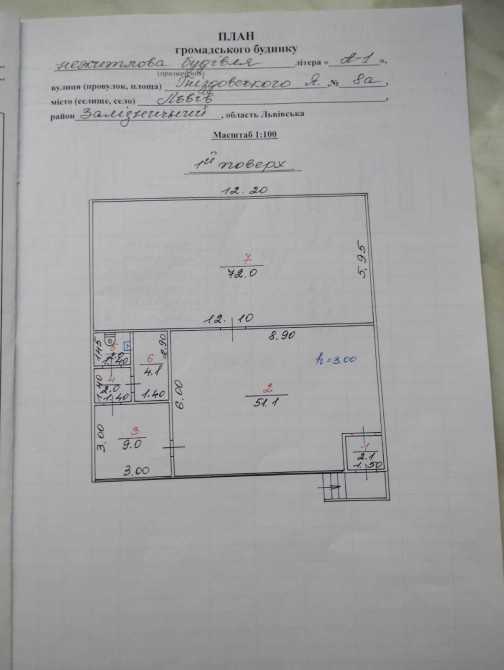 ПЛАН
громадського будинку
нежитлова будівля літера « А-1 »,
(призначення)
вулиця (провулок, площа) Гніздовського Я. ,№ 8а,
місто (селище, село) Львів ,
район Залізничний , область Львівська
Масштаб 1:100
1й поверх
12.20
7
72.0
5,95
12.10
8.90
1.45
5
1.40
6
4.1
2.90
h=3.00
1.40
4
2.0
1.40
1.40
6.00
2
51.1
3,00
3
9.0
3.00
1
2.1
1.50